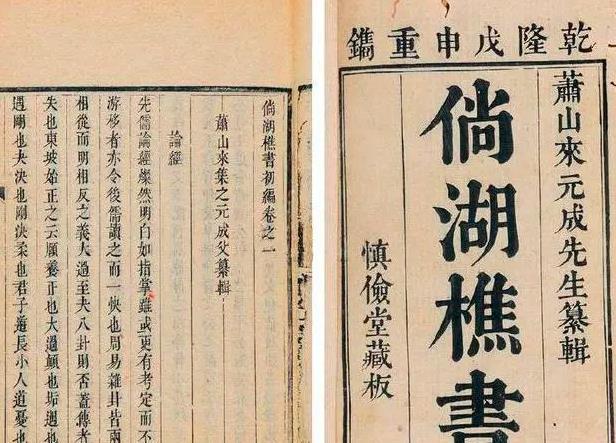 乾隆戊申重鐫
蕭山來元成先生纂輯
倘湖樵書
慎儉堂藏板
倘湖樵書初編卷之一
蕭山來集之元成父纂輯
論經
先儒論經燦然明白如指掌雖或更有考定而不
游移者亦令後儒讀之而一快也周易雜卦皆兩
相從而明相反之義大過至夬八卦則否蓋傳者
失也東坡始正之云頤養正也大過顛也姤遇也
遇剛也夬決也剛決柔也君子道長小人道憂也